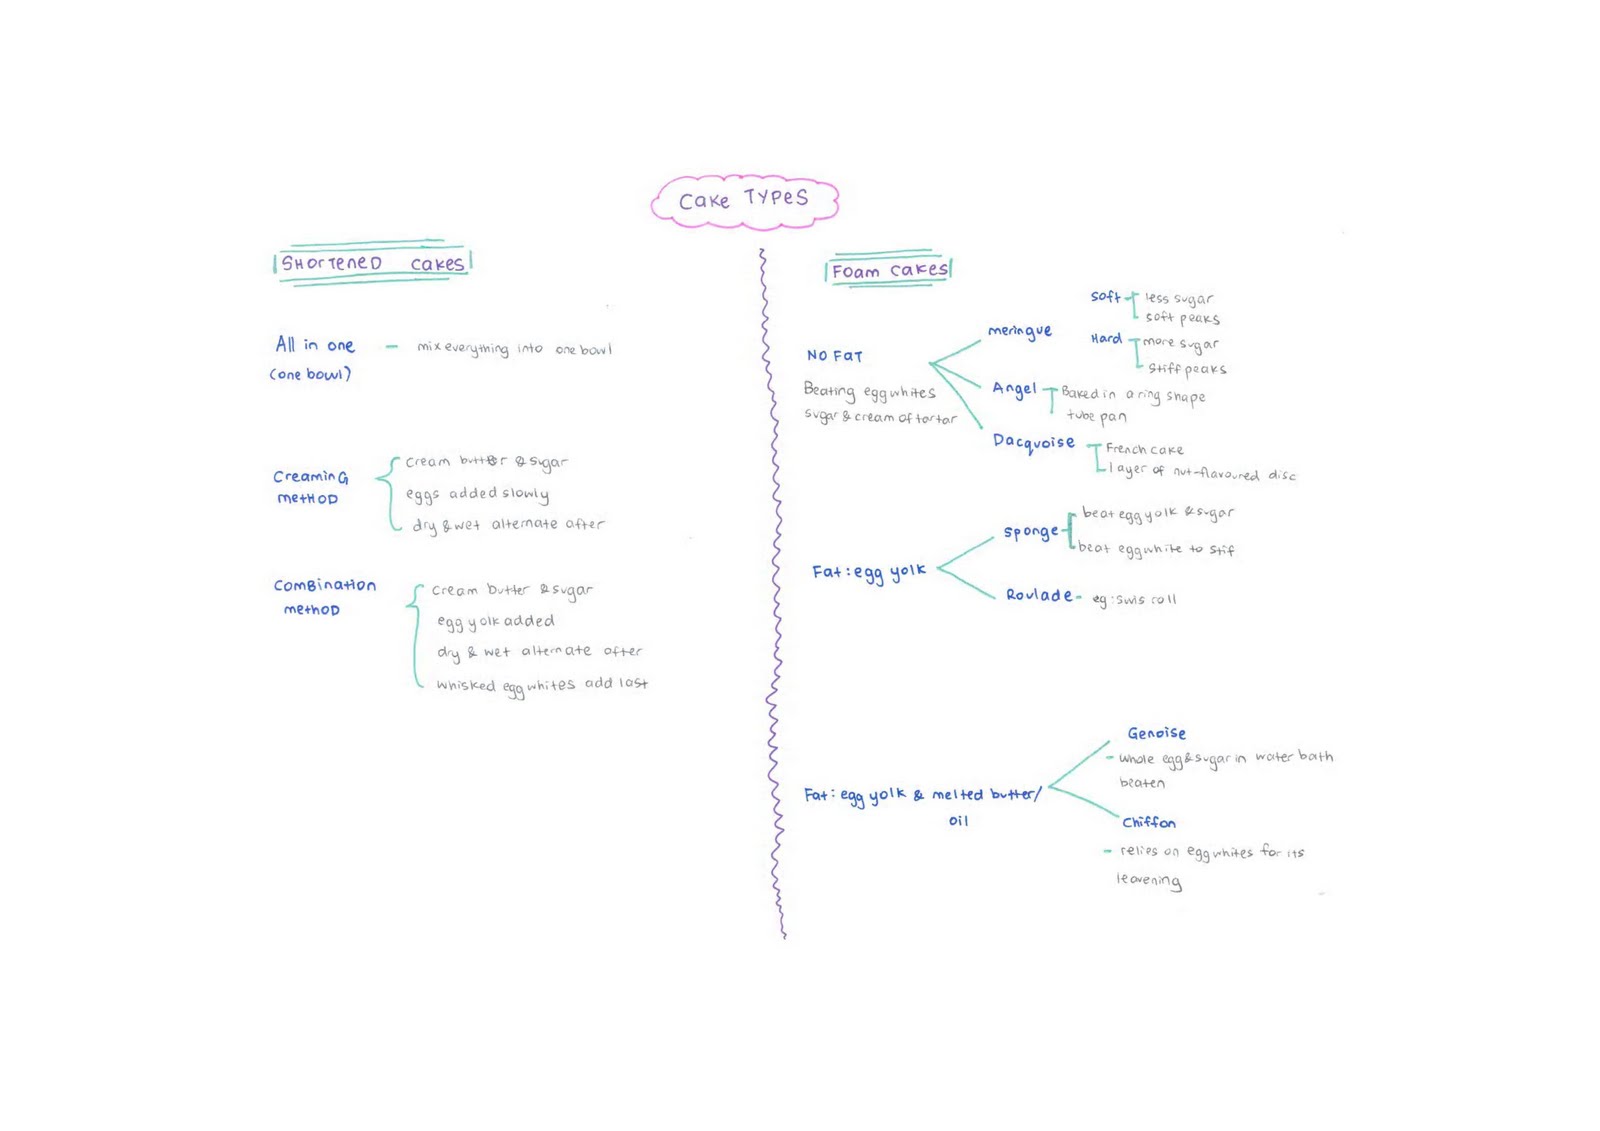 Cake Types
Shortened cakes
All in one
(one bowl)
— mix everything into one bowl
Creaming
method
cream butter & sugar
eggs added slowly
dry & wet alternate after
Combination
method
cream butter & sugar
egg yolk added
dry & wet alternate after
whisked egg whites add last
Foam cakes
NO FAT
Beating egg whites
sugar & cream of tartar
meringue
Soft
less sugar
soft peaks
Hard
more sugar
Stiff peaks
Angel
Baked in a ring shape
tube pan
Dacquoise
French cake
layer of nut-flavoured disc
Fat: egg yolk
sponge
beat egg yolk & sugar
beat egg white to stif
Roulade - eg: swis roll
Fat: egg yolk & melted butter/
oil
Genoise
- whole egg & sugar in water bath
beaten
Chiffon
- relies on egg whites for its
leavening